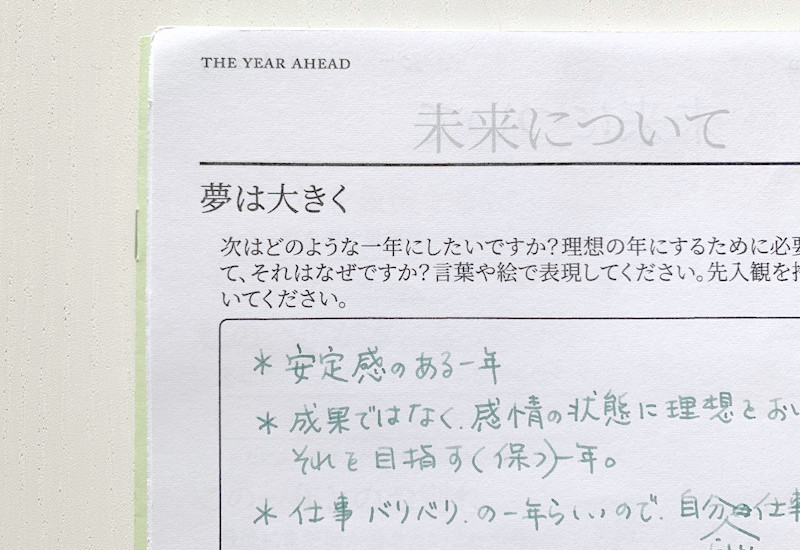 THE YEAR AHEAD
未来について
夢は大きく
次はどのような一年にしたいですか?理想の年にするために必要
て、それはなぜですか?言葉や絵で表現してください。先入観を持
いてください。
＊安定感のある一年
＊成果ではなく、感情の状態に理想をおい
それを目指す(保つ)一年。
＊仕事バリバリ、の一年らしいので、自分の仕事